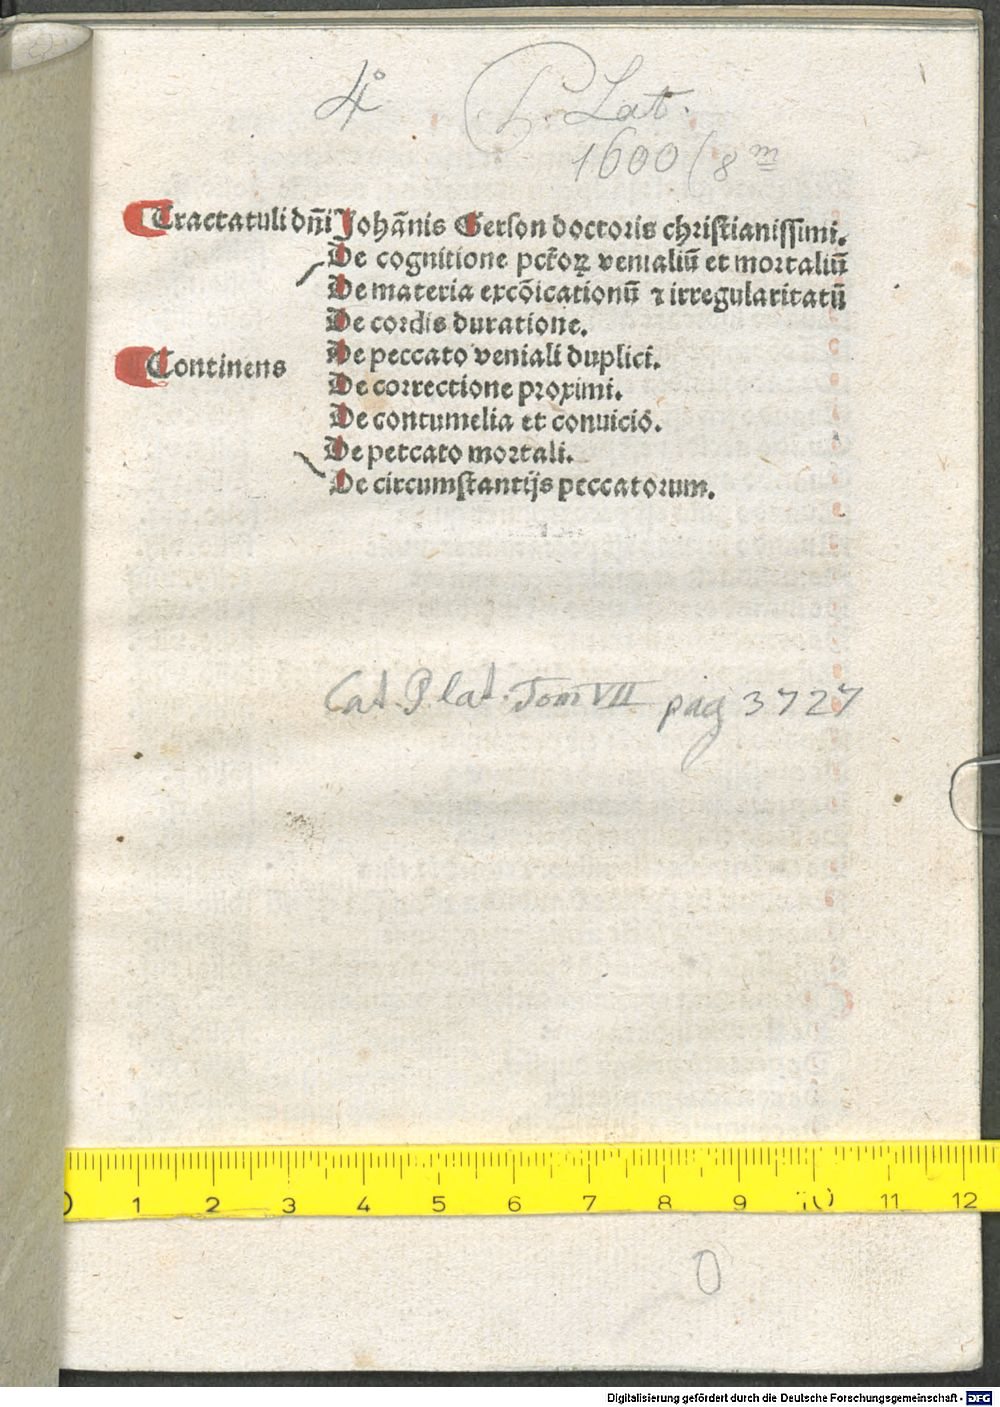 4° P. Lat.
1600(8 m
Tractatuli dn̄i Johānis Gerson doctoris christianissimi.
De cognitione pctōꝝ venialiū et mortaliū
De materia excōicationū ⁊ irregularitatū
De cordis duratione.
De peccato veniali duplici.
Continens
De correctione proximi.
De contumelia et conuicio.
De petcato mortali.
De circumstantijs peccatorum.
Cat. P lat. Tom VII pag 3727
0 1 2 3 4 5 6 7 8 9 10 11 12
0
Digitalisierung gefördert durch die Deutsche Forschungsgemeinschaft - DFG